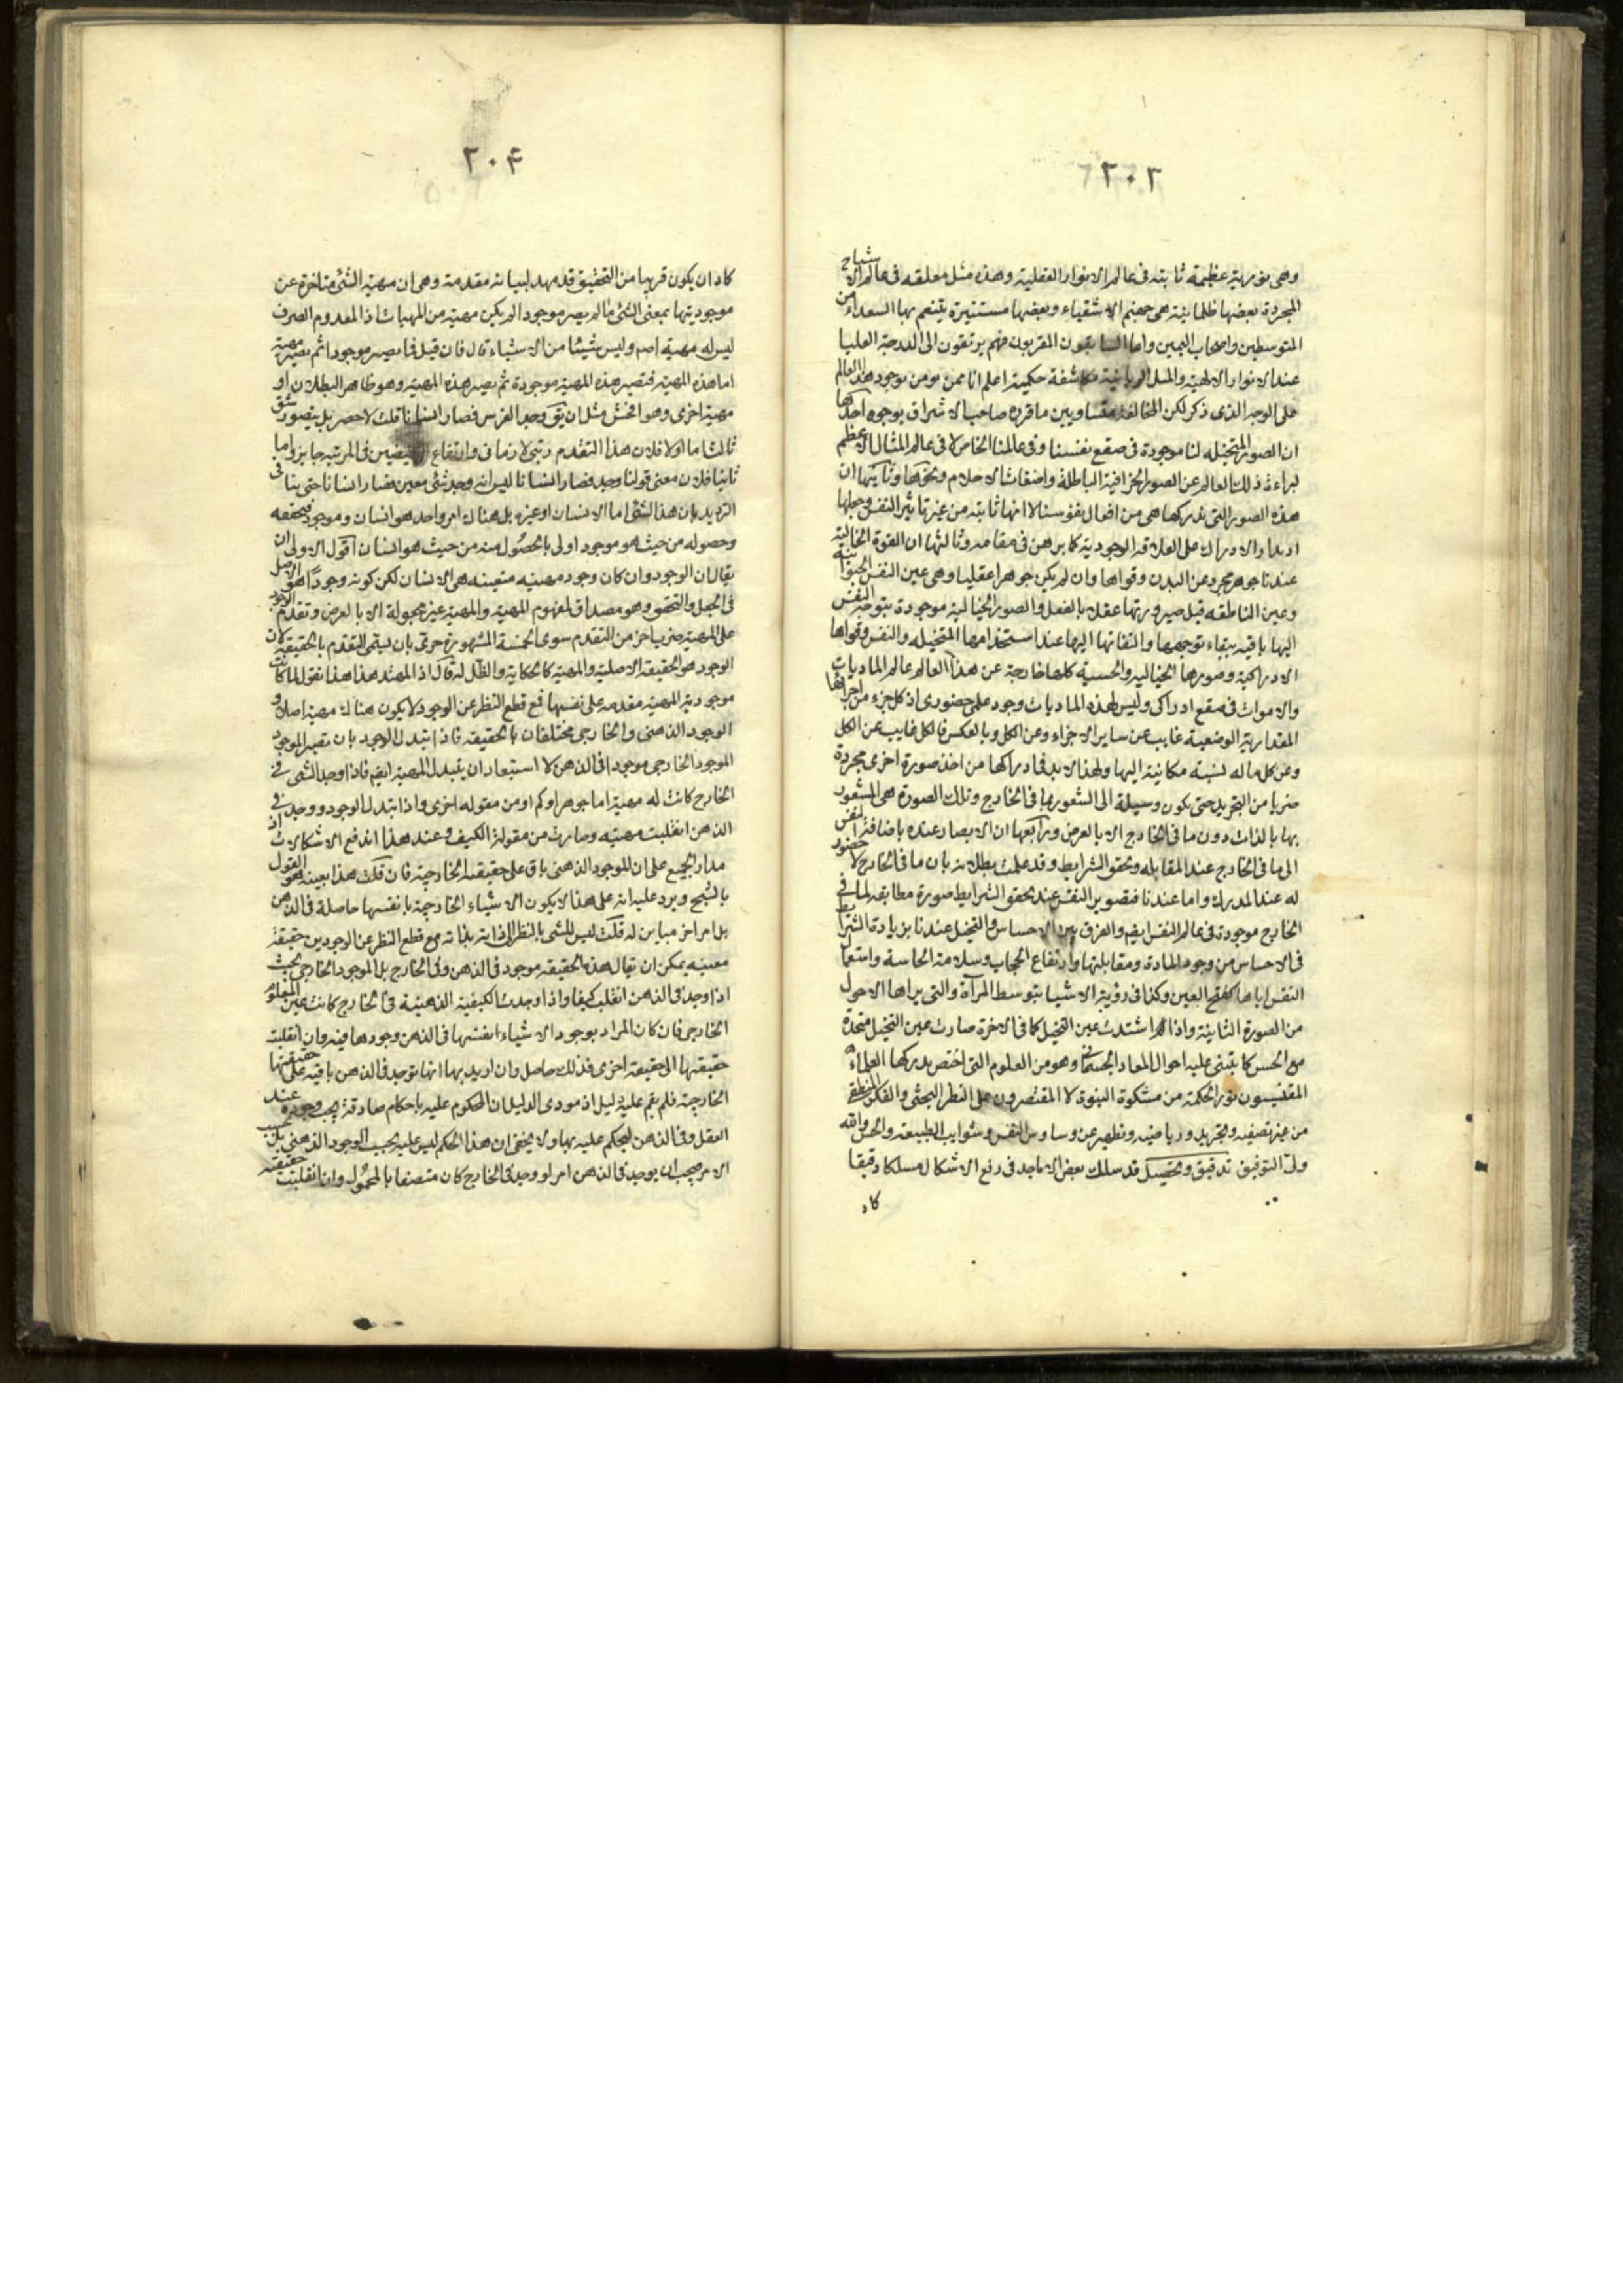 ٢٠٣
وهى نورية عظيمة ثابته فى عالم الانوار العقلية وهذه مثل معلقه فى عالم الاشباح
المجردة بعضها ظلمانية هى جهنم الاشقياء وبعضها مستنيرة يتنعم بها السعداء من
المتوسطين واصحاب اليمين واما السابقون المقربون فهم يرتقون الى الدرجة العليا
عند الانوار الالهية والمثل الربانية مكاشفة حكمية اعلم انا ممن يومن بوجود هذا العالم
على الوجه الذى ذكر لكن المخالفة بيننا وبين ما قرره صاحب الاشراق بوجوه احدها
ان الصور المتخيله لنا موجودة فى صقع نفسنا وفى عالمنا الخاص لا فى عالم المثال الاعظم
لبراءة ذلك العالم عن الصور الجزافية الباطلة واضغاث الاحلام ونحوها وثانيها ان
هذه الصور التى ندركها هى من افعال نفوسنا لا انها ثابته من غير تاثير النفس وجعلها
اد بناء الادراك على العلاقه الوجودية كما برهن فى مقامه وثالثها ان القوة الخيالية
عندنا جوهر مجرد عن البدن وقواها وان لم يكن جوهرا عقليا وهى عين النفس الحيوانية
وعين الناطقه قبل صيرورتها عقلا بالفعل والصور الخيالية موجودة بتوجه النفس
اليها باقيه ببقاء توجهها والتفاتها اليها عند استخدامها المتخيله والنفس وقواها
الادراكية وصورها الخياليه والحسية كلها خارجة عن هذا العالم عالم الماديات
والاموات فى صقع ادراكى وليس لهذه الماديات وجود على حضورى اذ كل جزء من اجزائها
المقدارية الوضعية غايب عن ساير الاجزاء وعن الكل وبالعكس فالكل غايب عن الكل
وعن كل ما له نسبة مكانية اليها ولهذا لابد فى ادراكها من اخذ صورة اخرى مجردة
ضربا من التجريد حتى يكون وسيلة الى الشعور بما فى الخارج وتلك الصورة هى المشعور
بها بالذات دون ما فى الخارج الا بالعرض ورابعها ان الابصار عنده باضافة النفس
الى ما فى الخارج عند المقابله وتحقق الشرايط وقد علمت بطلانه بان ما فى الخارج لا حضور
له عند المدرك واما عندنا فتصوير النفس عند تحقق الشرايط صورة مطابقه لما فى
الخارج موجودة فى عالم النفس ايضم والفرق بين الاحساس والتخيل عندنا بزيادة الشرايط
فى الاحساس من وجود المادة ومقابلتها وارتفاع الحجاب وسلامة الحاسة واستعمال
النفس اياها كفتح العين وكذا فى رؤية الاشيا بتوسط المرآة والتى يراها الاحول
من الصورة الثانية واذا اشتدت عين التخيل كما فى الاخرة صارت عين التخيل متحدة
مع الحس كما يبتنى عليه احوال المعاد الجسمانى وهو من العلوم التى اختص بدركها العلماء
المقتبسون نور الحكمة من مشكوة النبوة لا المقتصرون على النظر البحثى والفكر المنطقى
من غير تصفيه وتجريد ورياضيه وتطهير عن وساوس النفس وشوايب الطبيعة والحس والله
ولى التوفيق تدقيق وتحصيل قد سلك بعض الاماجد فى رفع الاشكال مسلكا دقيقا
كاد
٢٠۴
كاد ان يكون قريبا من التحقيق قد مهد لبيانه مقدمة وهى ان مهية الشئ متاخرة عن
موجوديتها بمعنى الشئ ما لم يصر موجودا لم يكن مهية من المهيات اذ المعدوم الصرف
ليس له مهية اصم وليس شيئا من الاشياء قال فان قيل فما يصير موجودا ثم يصير مهية
اما هذه المهية فتصير هذه المهية موجودة ثم يصير هذه المهية وهو ظاهر البطلان او
مهية اخرى وهو افحش مثل ان يق وجد الفرس فصار انسانا قلت لا حصر بل يتصور شق
ثالث اما اولا فلان هذا التقدم رتبى لا زمانى وارتفاع النقيضين فى المرتبه جايز واما
ثانيا فلان معنى قولنا وجد فصار انسانا ليس انه وجد شئ معين فصار انسانا حتى يتاتى
الترديد بان هذا الشئ اما الانسان او غيره بل هناك امر واحد هو انسان وموجود فتحققه
وحصوله من حيث هو موجود اولى بالحصول منه من حيث هو انسان اقول الاولى ان
يقال ان الوجود وان كان وجود مهينه متعينه هى الانسان لكن كونه وجودا هو الاصل
فى الجعل والتحقق وهو مصداق لمفهوم المهية والمهية غير مجعولة الا بالعرض وتقدم الوجود
على المهية ضرب اخر من التقدم سوى الخمسة المشهورة حرى بان يسمى التقدم بالحقيقة لان
الوجود هو الحقيقة الاصلية والمهية كالحكاية والظل له قال اذا تمهد هذا نقول لما كانت
موجودية المهية مقدمه على نفسها فمع قطع النظر عن الوجود لا يكون هناك مهية اصلا و
الوجود الذهنى والخارجى مختلفان بالحقيقة فاذا تبدل الوجود بان تصير الموجود
الموجود الخارجى موجودا فى الذهن لا استبعاد ان يتبدل المهية ايضم فاذا وجد الشى فى
الخارج كانت له مهية اما جوهر او كم او من مقوله اخرى واذا تبدل الوجود ووجد فى
الذهن انقلبت مهيته وصارت من مقولة الكيف وعند هذا اندفع الاشكالات اذ
مدار الجميع على ان الموجود الذهنى باق على حقيقته الخارجية فان قلت هذا بعينه هو القول
بالشبح ويرد عليه انه على هذا لا يكون الاشياء الخارجية بانفسها حاصلة فى الذهن
بل امر اخر مباين له قلت ليس للشى بالنظر الى ذاته بذاته مع قطع النظر عن الوجودين حقيقة
معينه يمكن ان يقال هذه الحقيقة موجود فى الذهن وفى الخارج بل الموجود الخارجى بحيث
اذا وجد فى الذهن انقلب كيفا واذا وجدت الكيفية الذهنية فى الخارج كانت عين المعلوم
الخارجى فان كان المراد بوجود الاشياء انفسها فى الذهن وجودها فيه وان انقلبت
حقيقتها الى حقيقة اخرى فذلك حاصل وان اريد بها انها توجد فى الذهن باقيه على حقيقتها
الخارجية فلم يقم عليه دليل اذ مودى الدليل ان المحكوم عليه باحكام صادقة يجب وجوده عند
العقل وفى الذهن ليحكم عليه بها ولا يخفى ان هذا الحكم ليس عليه بحسب الوجود الذهنى بل بحسب
الامر فيجب ان يوجد فى الذهن امر لو وجد فى الخارج كان متصفا بالمحمول وان انقلبت حقيقته